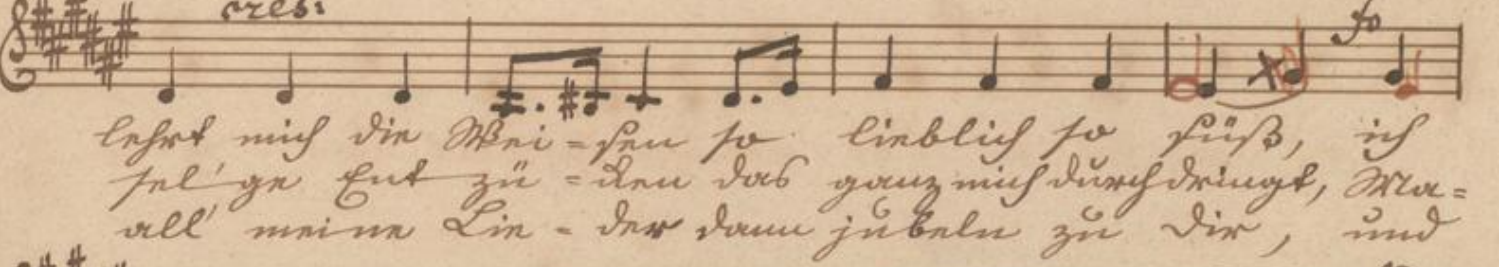 cres:
fo
lehrt mich die Wei-sen so lieblich so süß, ich
sel'ge Ent zü-cken das ganz mich durchdringt, Ma=
all' meine Lie-der dann jubeln zu Dir, und